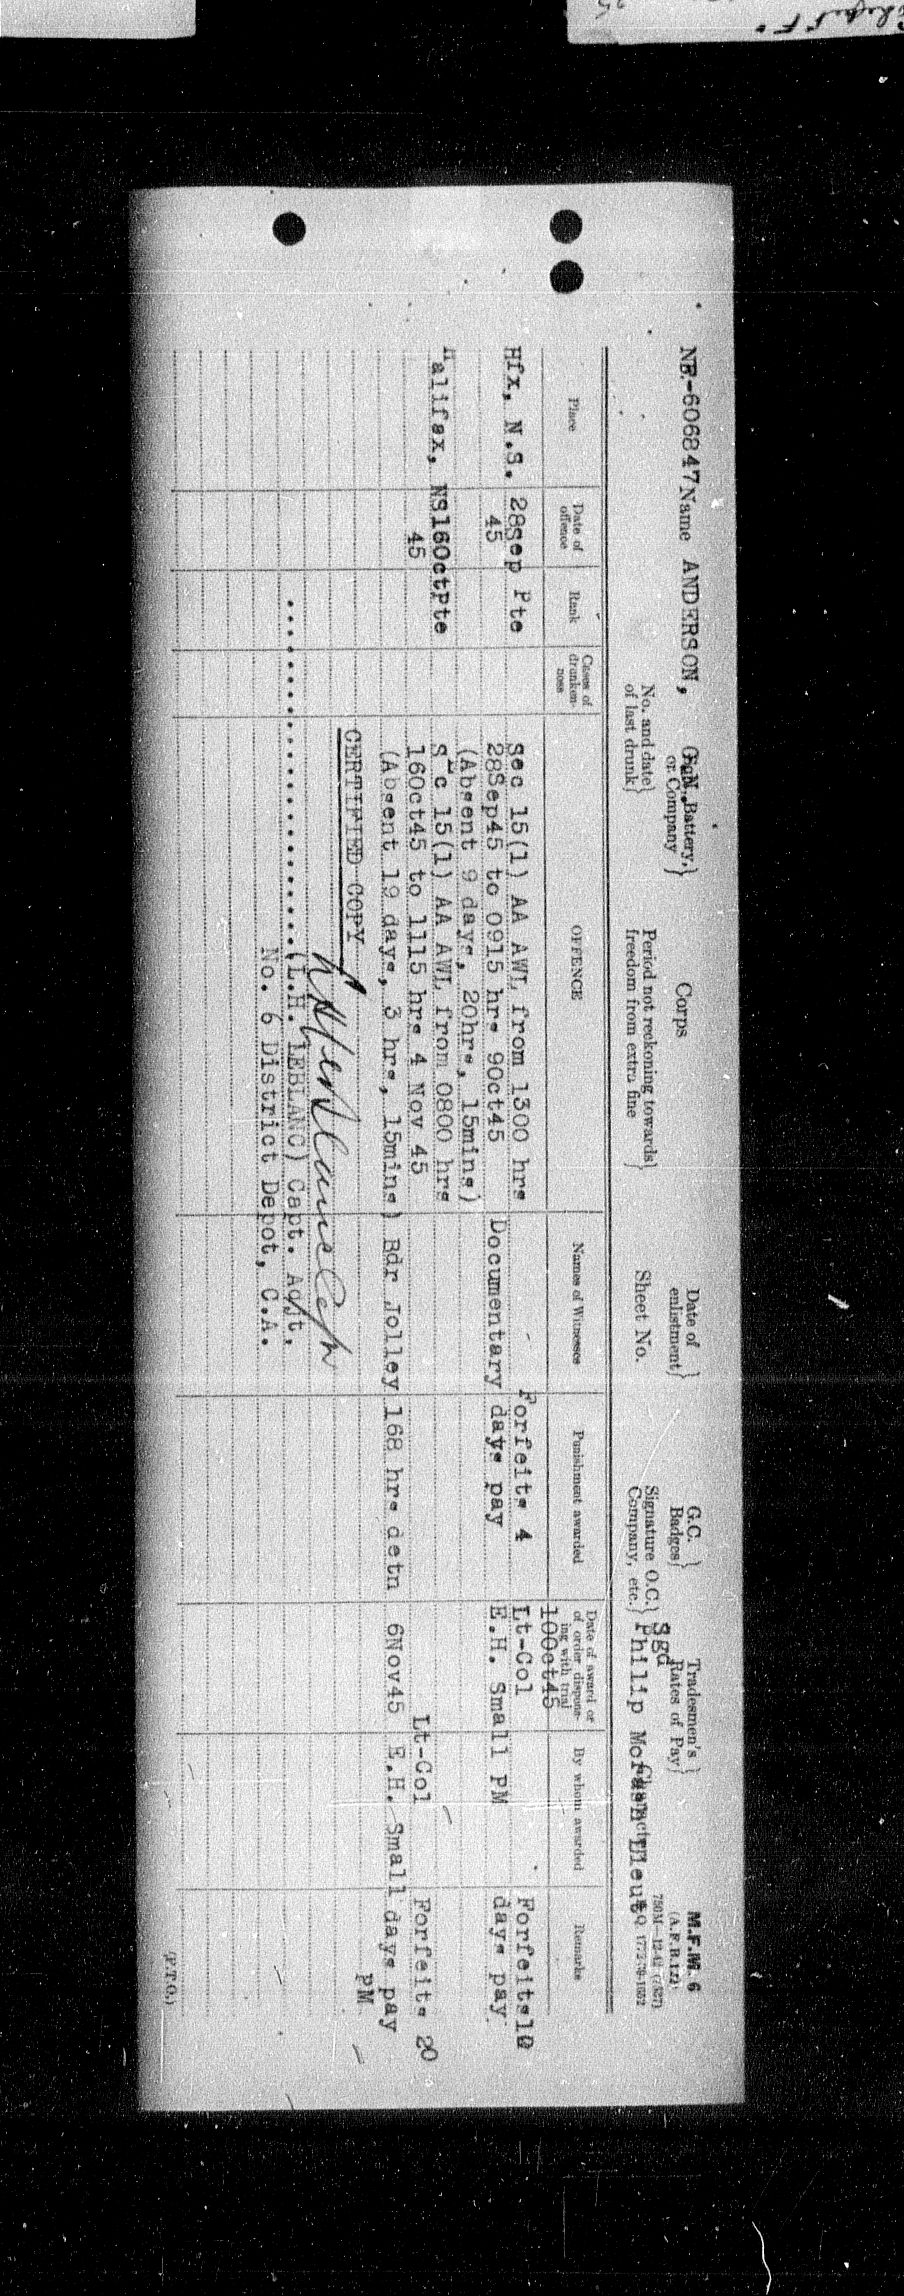 M.F.M. 6
(A.F.B.122)
NB.-606847 Name ANDERSON, G.N. Battery, or Company Corps Date of enlistment G.C. Badges Tradesmen's Rates of Pay
No. and date of last drunk Period not reckoning towards freedom from extra fine Sheet No. Signature O.C. Company, etc. Sgd Philip Lieut
Place Date of offence Rank Cases of drunkenness OFFENCE Names of Witnesses Punishment awarded Date of award or of order dispensing with trial By whom awarded Remarks
10Oct45
Hfx, N.S. 28Sep Pte Sec 15(1) AA AWL from 1300 hrs Forfeits 4 Lt-Col Forfeits 10
45 28Sep45 to 0915 hrs 9Oct45 Documentary days pay E.H. Small PM days pay.
(Absent 9 days, 20hrs, 15mins)
Halifax, NS 16Oct Pte Sec 15(1) AA AWL from 0800 hrs
45 16Oct45 to 1115 hrs 4 Nov 45 Lt-Col Forfeits 20
(Absent 19 days, 3 hrs, 15mins) Bdr Jolley 168 hrs detn 6Nov45 E.H. Small days pay
PM
CERTIFIED COPY
(L.H. LEBLANC) Capt. Adjt,
No. 6 District Depot, C.A.
(P.T.O.)